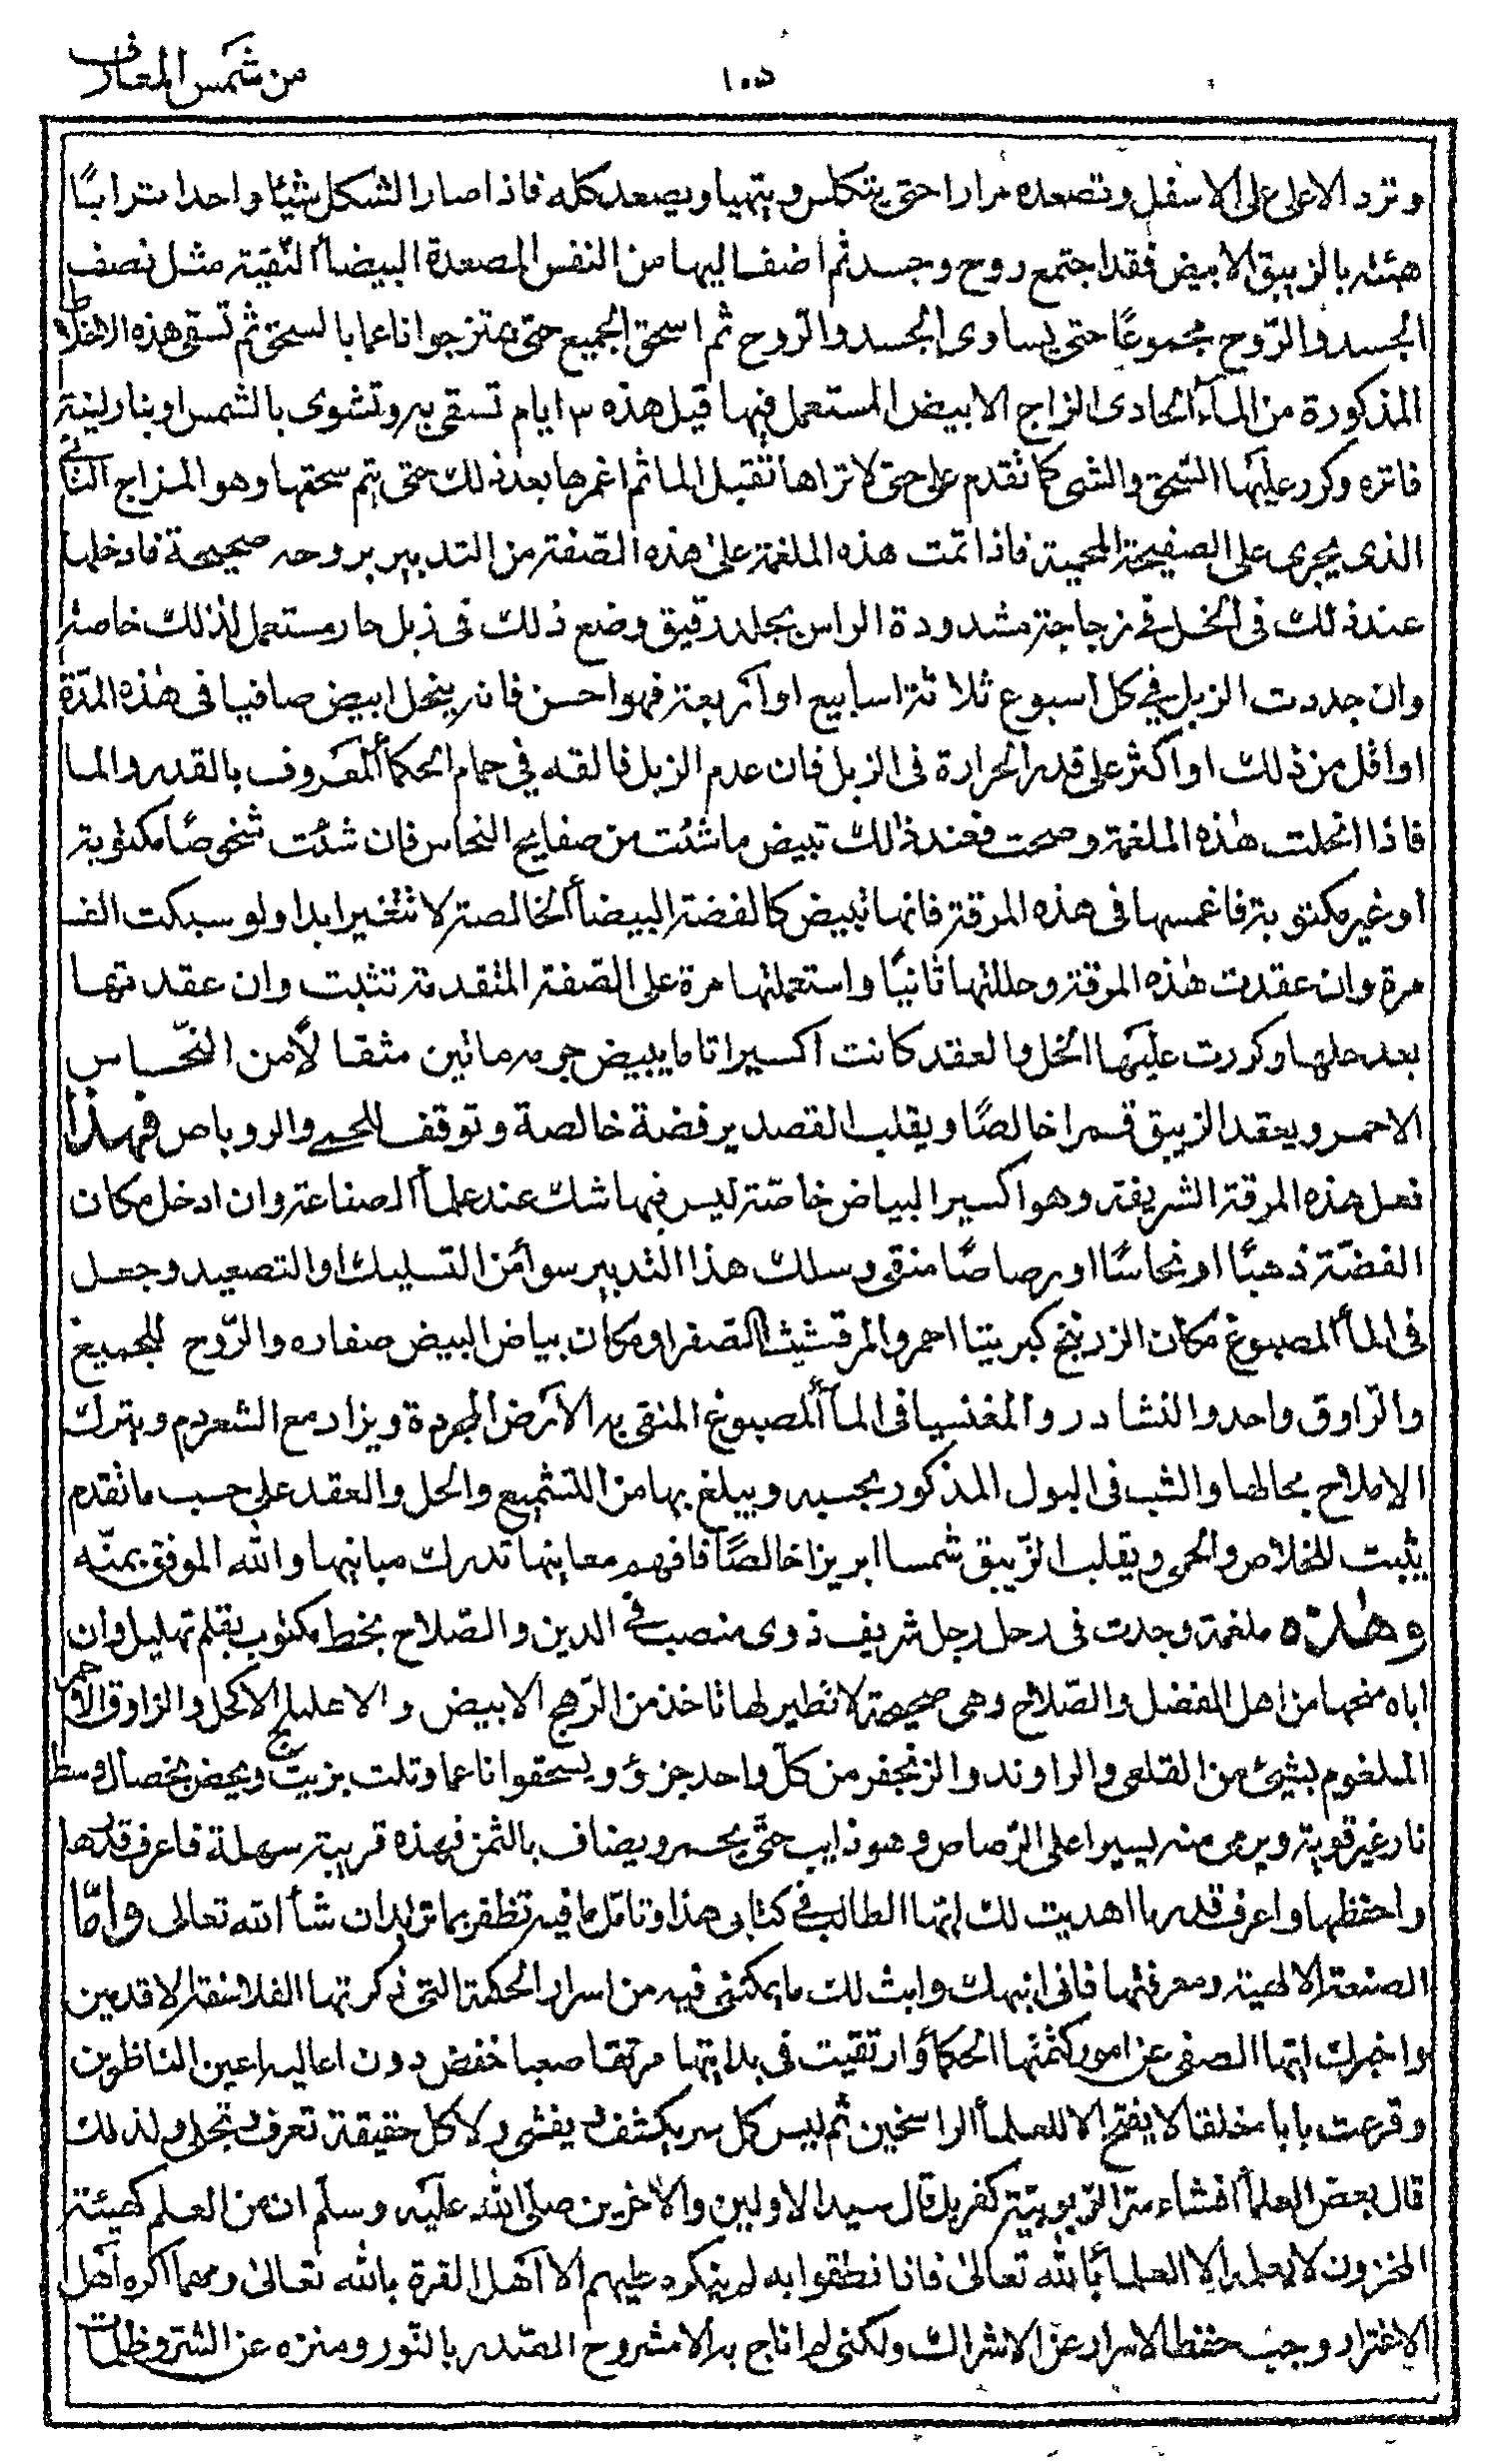 من شمس المعارف
١٠٥
وترد الاعلى على الاسفل وتصعده مرارا حتى يتكلس ويتهيا ويصعد كله فاذا صار الشكل شيئا واحدا ترابيا
هيئته بالزيبق الابيض فقد اجتمع روح وجسد ثم اضف اليها من النفس المصعدة البيضأ النقية مثل نصف
الجسد والرّوح مجموعًا حتى يساوى الجسد والرّوح ثم اسحق الجميع حتى يمتزجوا ناعما بالسحق ثم تسقى هذه الاخلاط
المذكورة من المآء الحادى الزاج الابيض المستعمل فيها قيل هذه ٣ ايام تسقى به وتشوى بالشمس او بنار لينة
فاتره وكرر عليها السّحق والشى كما تقدم على حتى لا تراها تقبل الما ثم اغمرها بعد ذلك حتى يتم سحقها وهو المزاج الثانى
الذى يجرى على الصفيحة المحمية فاذا تمت هذه الملغمة على هذه الصّفة من التدبير بروحه صحيحة فادخلها
عند ذلك فى الخل فى زجاجة مشدودة الراس بجلد رقيق وضع ذلك فى زبل حار مستعمل لذلك خاصة
وان جددت الزبل في كل اسبوع ثلاثة اسابيع او اربعة فهو احسن فانه ينحل ابيض صافيا فى هٰذه المدّة
او اقل من ذلك او اكثر على قدر الحرارة فى الزبل فان عدم الزبل فالقه في حمام الحكمأ المعروف بالقدر والما
فاذا انحلت هٰذه الملغمة وصحت فعند ذلك تبيض ما شئت من صفايح النحاس فان شئت شخوصًا مكتوبة
او غير مكتوبة فاغمسها فى هذه المرقة فانها تبيض كالفضة البيضأ الخالصة لا تتغير ابدا ولو سبكت الف
مرة وان عقدت هٰذه المرقة وحللتها ثانيًا واستعملتها مرة على الصّفة المتقدمة تثبت وان عقدتها
بعد حلها وكررت عليها الخل والعقد كانت اكسيرا تاما يبيض جزءه مائتين مثقالًا من النّحاس
الاحمر ويعقد الزيبق قمرا خالصًا ويقلب القصدير فضة خالصة وتوقف للحمى والروباص فهذا
فعل هذه المرقة الشريفة وهو اكسير البياض خاصّة ليس فيها شك عند علمأ الصناعة وان ادخل مكان
الفضّة ذهبًا او نحاسًا او رصاصًا منقى وسلك هذا التدبير سوأ من التسليك او التصعيد وجعل
فى المأ المصبوغ مكان الزرنيخ كبريتا احمر والمرقشيثا الصفرا ومكان بياض البيض صفاره والرّوح للجميع
والرّاوق واحد والنشادر والمغنسيا فى المآ المصبوغ المنقى به الارض المجردة ويزاد مع الشعر دم ويترك
الاملاح بحالها والشب فى البول المذكور بحسبه ويبلغ بها من التشميع والحل والعقد على حسب ما تقدم
يثبت للخلاص والحمى ويقلب الزّيبق شمسا ابريزا خالصًا فافهم معاينها تدرك مبانيها والله الموفق بمنّه
وهٰذه ملغمة وجدت فى رحل رجل شريف ذوى منصب في الدين والصّلاح بخط مكتوب بقلم تهليل وان
اباه منحها من اهل الفضل والصّلاح وهى صحيحة لا نظير لها تاخذ من الرّهج الابيض والاهليلج الاكحل والزاوق الاحمر
الملغوم بشيئ من القلعى والراوند والزنجفر من كلّ واحد جزؤ ويسحقوا ناعما وتلت بزيت ويحض بخصال وسط
نار غير قوية ويرمى منه يسيرا على الرّصاص وهو ذايب حتّى يحمر ويضاف بالثمن فهذه قريبة سهلة فاعرف قدرها
واحفظها واعرف قدر ما اهديت لك ايّها الطالب في كتابى هذا وتامّل ما فيه تظفر بما تريد ان شأ الله تعالى وامّا
الصنعة الالهية ومعرفتها فانى انبهك وابث لك ما يمكننى فيه من اسرار الحكمة التى ذكرتها الفلاسفة الاقدمين
واخبرك ايّها الصفى عن امور كتمتها الحكمأ وارتقيت فى بدايتها مرتقا صعبا خفض دون اعاليه اعين الناظرين
وقرعت بابا مغلقا لا يفتح الا للعلمأ الراسخين ثم ليس كل سر يكشف ويفشى ولا كل حقيقة تعرف وتجلى ولذلك
قال بعض العلمأ افشاء سر الرّبوبيّة كفر بل قال سيد الاولين والاخرين صلّى الله عليه وسلّم ان من العلم كهيئة
المخزون لا يعلمه الا العلمأ بالله تعالىٰ فاذا نطقوا به لم ينكره عليهم الا اهل الغرة بالله تعالىٰ ومهما اكره اهل
الاغترار وجب حفظ الاسرار عن الاشراك ولكنى لم اناج به الا مشروح الصّدر بالنّور ومنزه عن الشر وظلمات